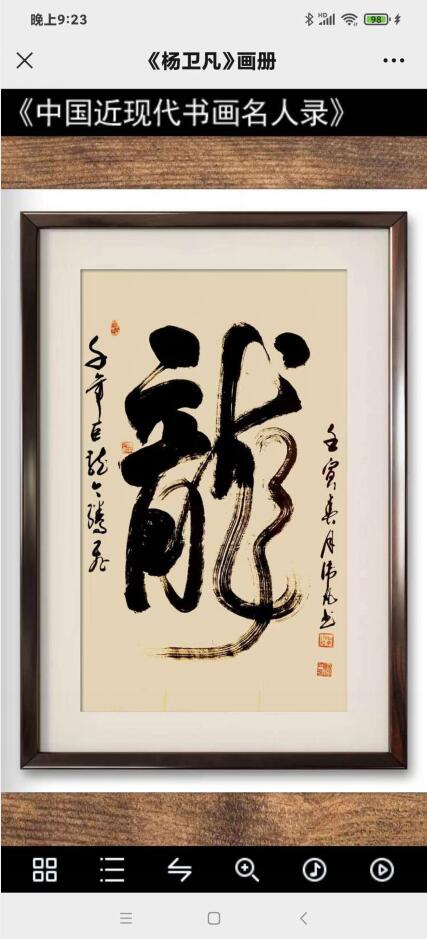 晚上9:23
HD
98
《杨卫凡》画册
《中国近现代书画名人录》
龍
千年巨龍今騰飞
壬寅春月伟凡书